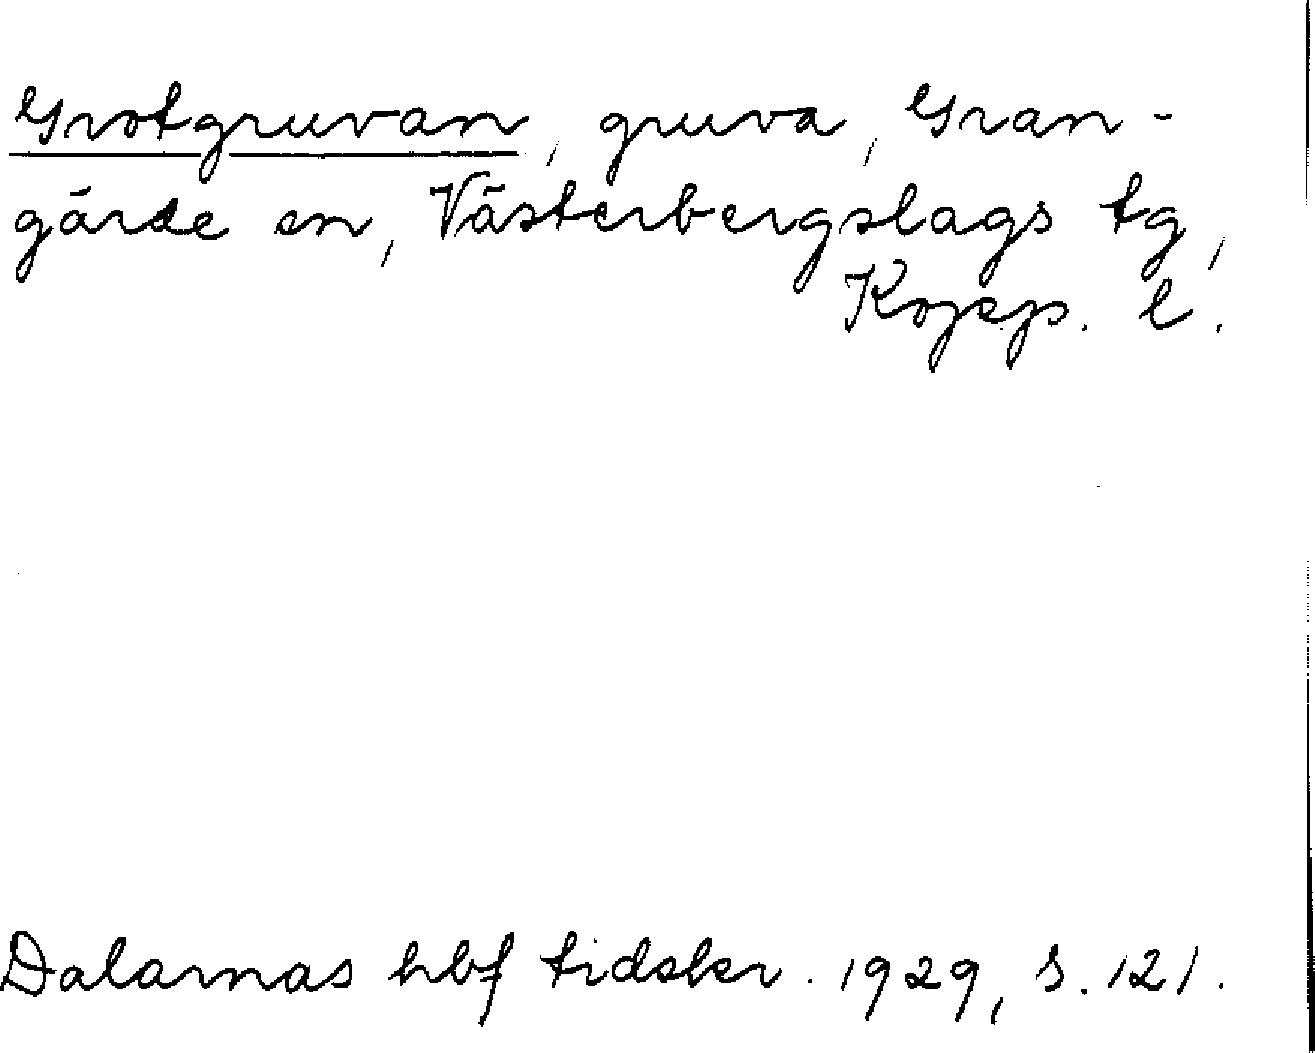 Grotgruvan, gruva, Gran-
gärde sn, Västerbergslags tg,
Kopp. l.
Dalarnas hbf tidskr. 1929, s. 121.